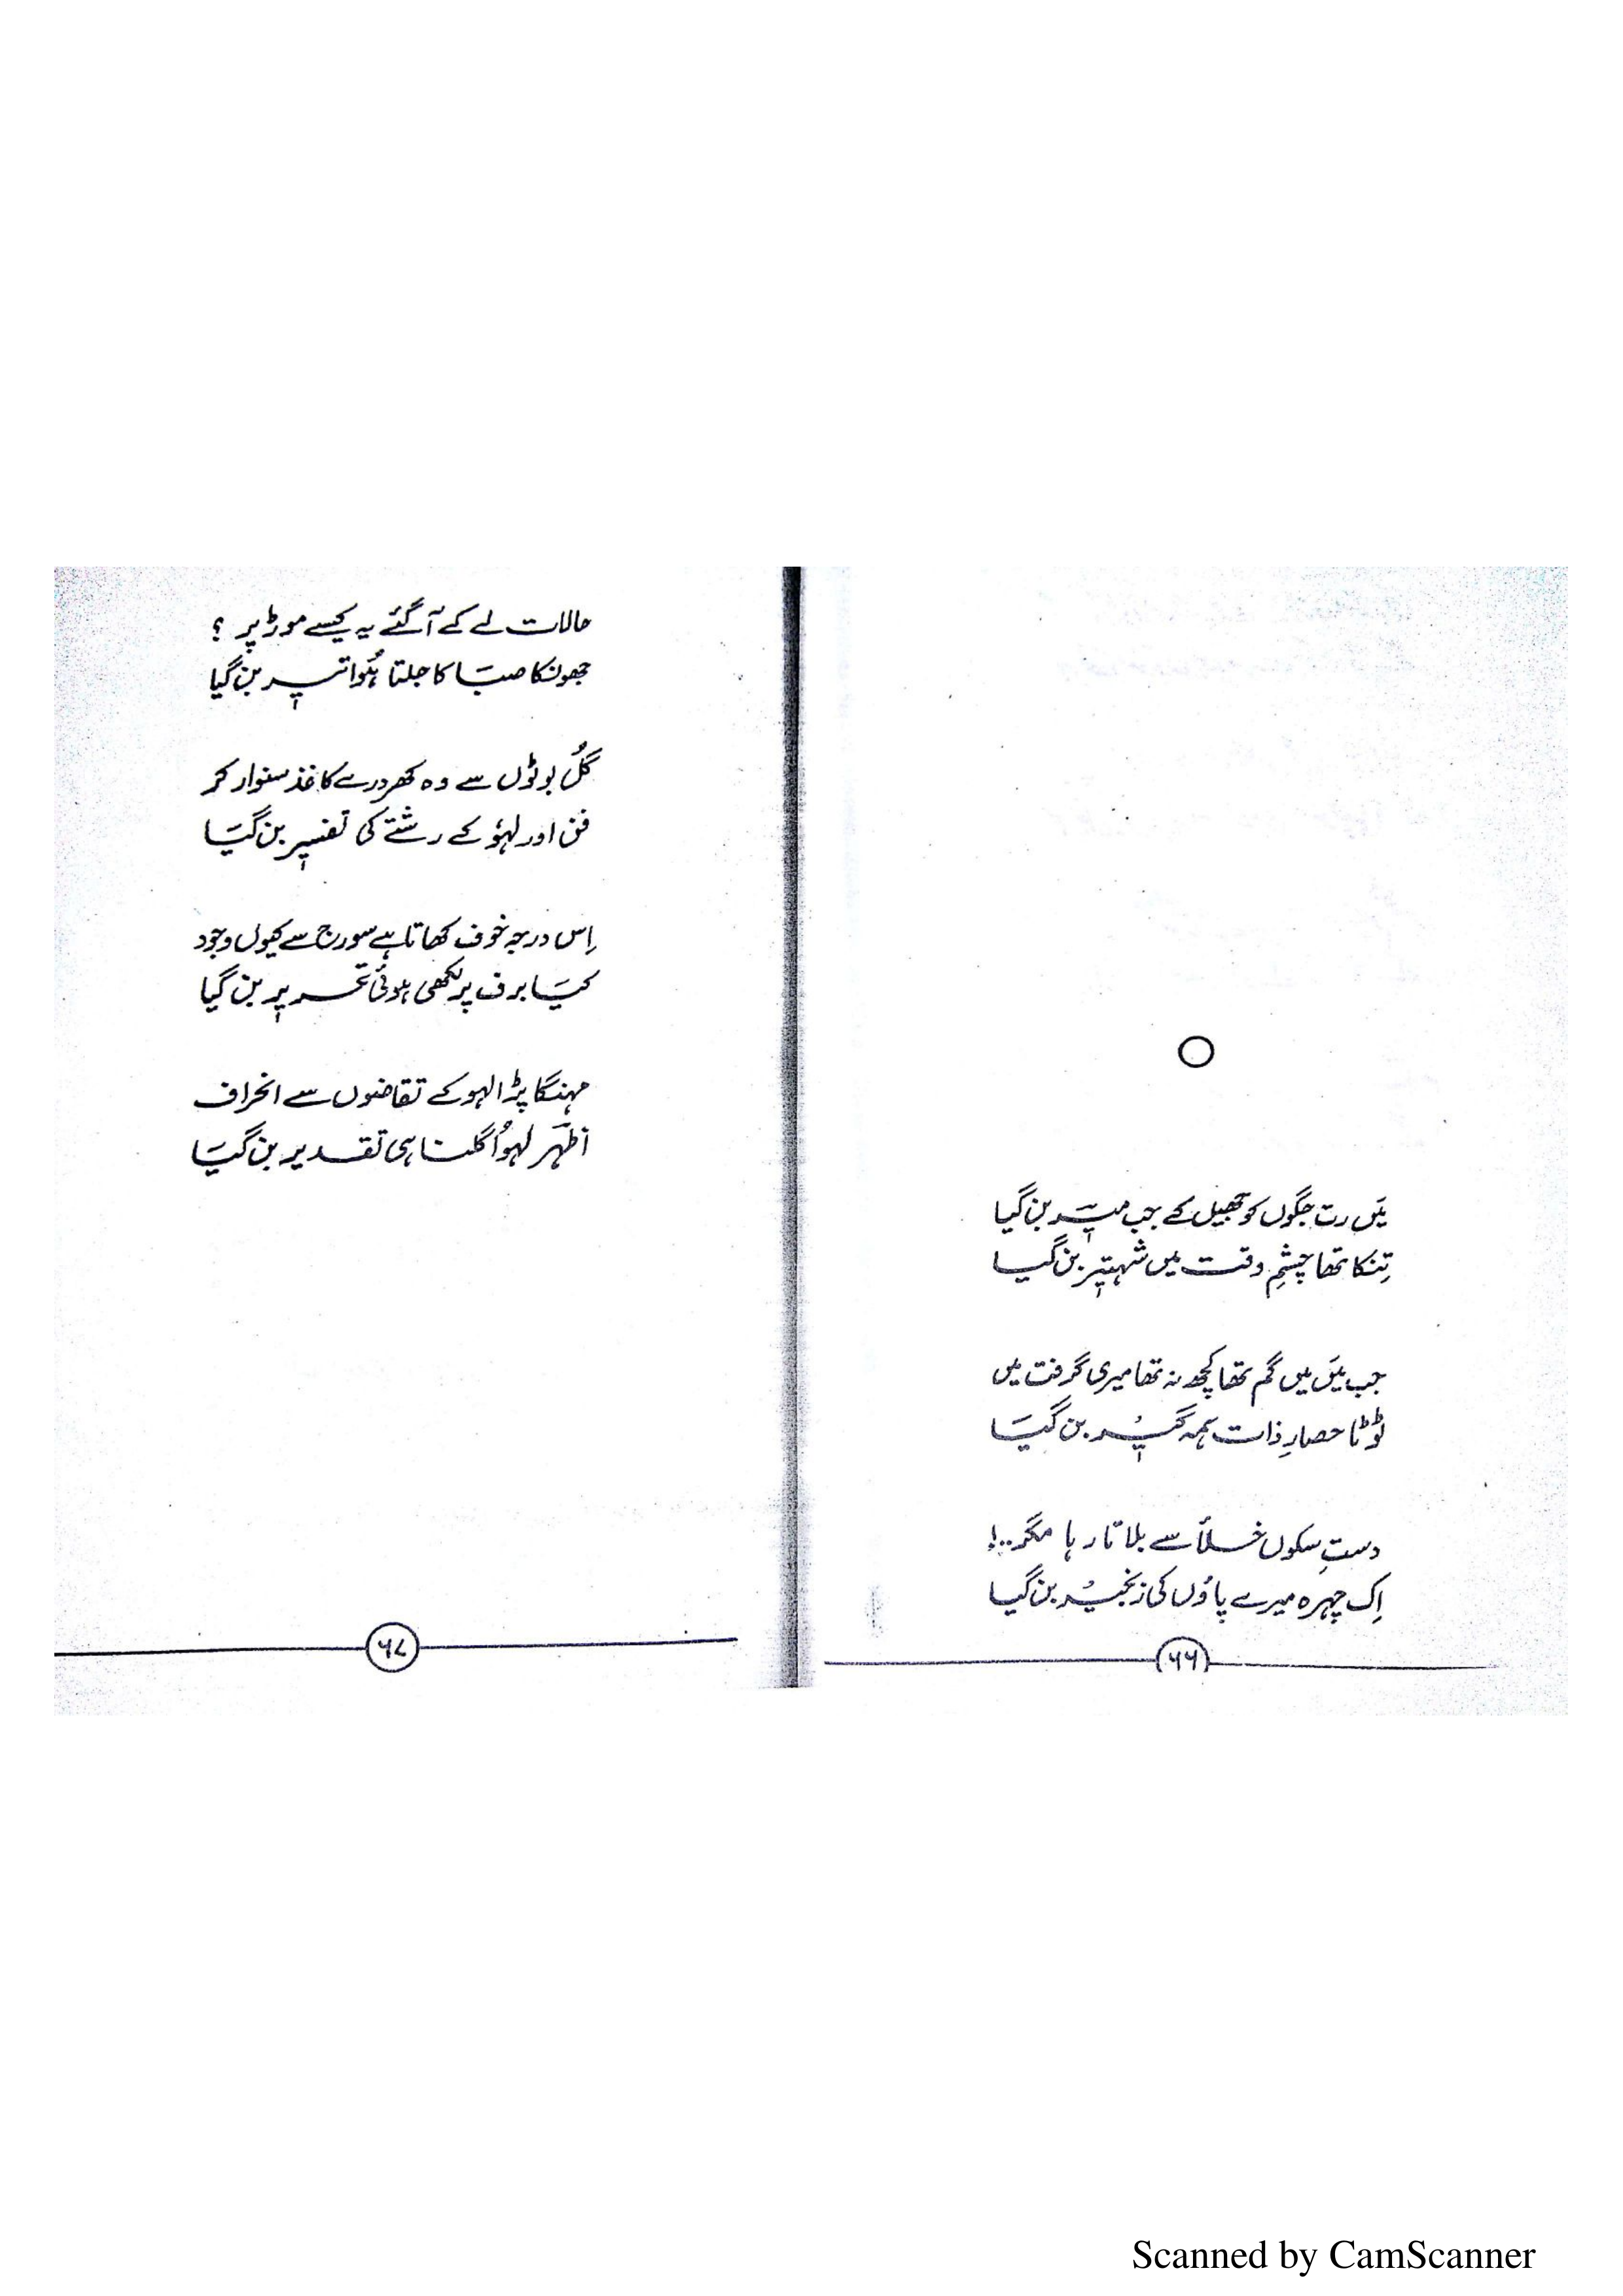 مَیں رت جگوں کو جھیل کے جب میر بن گیا
تِنکا تھا چشمِ وقت میں شہتیر بن گیا
جب مَیں میں گم تھا کچھ نہ تھا میری گرفت میں
ٹوٹا حصارِ ذات ہمہ گیر بن گیا
دستِ سکوں خلأ سے بلاتا رہا مگر..!
اِک چہرہ میرے پاؤں کی زنجیر بن گیا
۶۶
حالات لے کے آ گئے یہ کیسے موڑ پر ؟
جھونکا صبا کا جلتا ہُوا تیر بن گیا
گُل بوٹوں سے وہ کھردرے کاغذ سنوار کر
فن اور لہوُ کے رشتے کی تفسیر بن گیا
اِس درجہ خوف کھاتا ہے سورج سے کیوں وجود
کیا برف پر لکھی ہوئی تحریر بن گیا
مہنگا پڑا لہو کے تقاضوں سے انحراف
اظہر لہو اُگلنا ہی تقدیر بن گیا
۶۷
Scanned by CamScanner